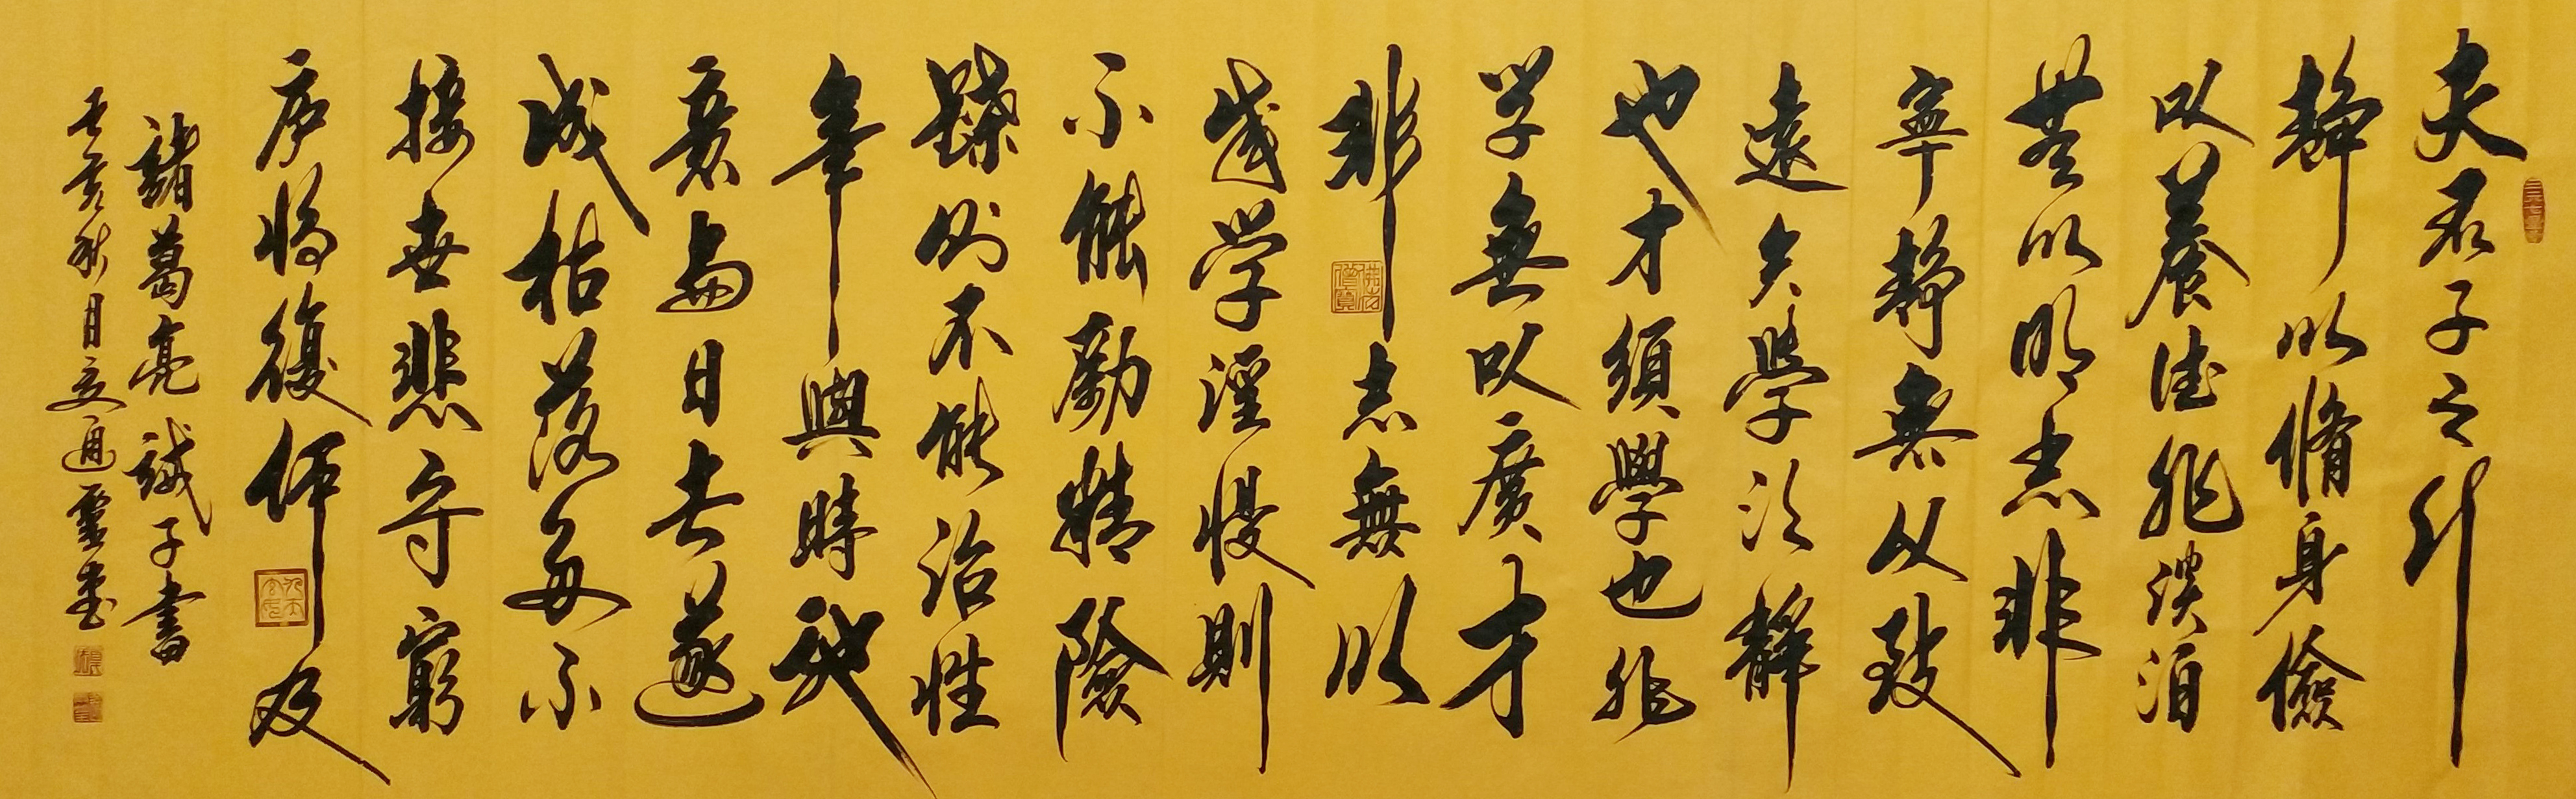 夫君子之行
靜以脩身儉
以養德非淡泊
無以明志非
寧靜無以致
遠夫學須靜
也才須學也非
学無以廣才
非志無以
成学淫慢則
不能勵精險
躁則不能治性
年與時馳
意與日去遂
成枯落多不
接世悲守窮
廬將復何及
諸葛亮誡子書
秋月